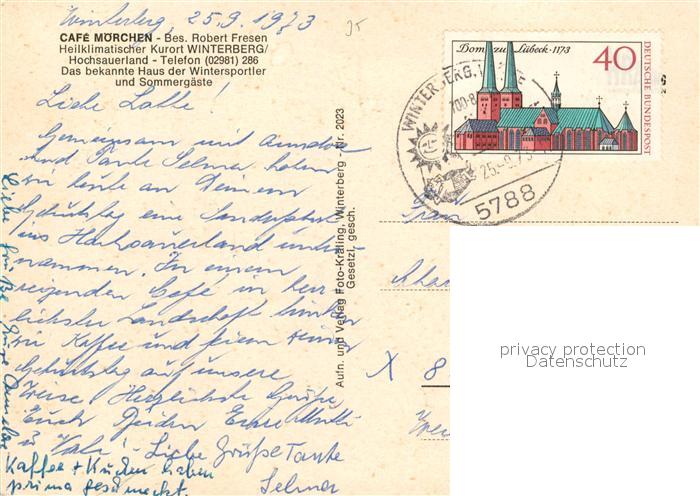 Winterberg, 25.9.1973
CAFÉ MÖRCHEN - Bes. Robert Fresen
Heilklimatischer Kurort WINTERBERG/
Hochsauerland - Telefon (02981) 286
Das bekannte Haus der Wintersportler
und Sommergäste
Liebe Lotte!
Gemeinsam mit
und Tante Selma haben
wir heute an Deinem
Geburtstag eine
ins Hochsauerland unter-
nommen. In einem
reizenden Café in herr-
lichster Landschaft trinken
wir Kaffee und feiern
Geburtstag auf unsere
Weise. Herzlichste Grüße
Euch Beiden Eure Mutti
u. Liebe Grüße Tante
Selma
Kaffee + Kuchen haben
prima geschmeckt.
Liebe
Aufn. und Verlag Foto-Kräling, Winterberg - Nr. 2023
Gesetzl. gesch.
Dom zu Lübeck · 1173
40
DEUTSCHE BUNDESPOST
WINTERBERG,
25.-9.73
5788
Frau
X 8
privacy protection
Datenschutz